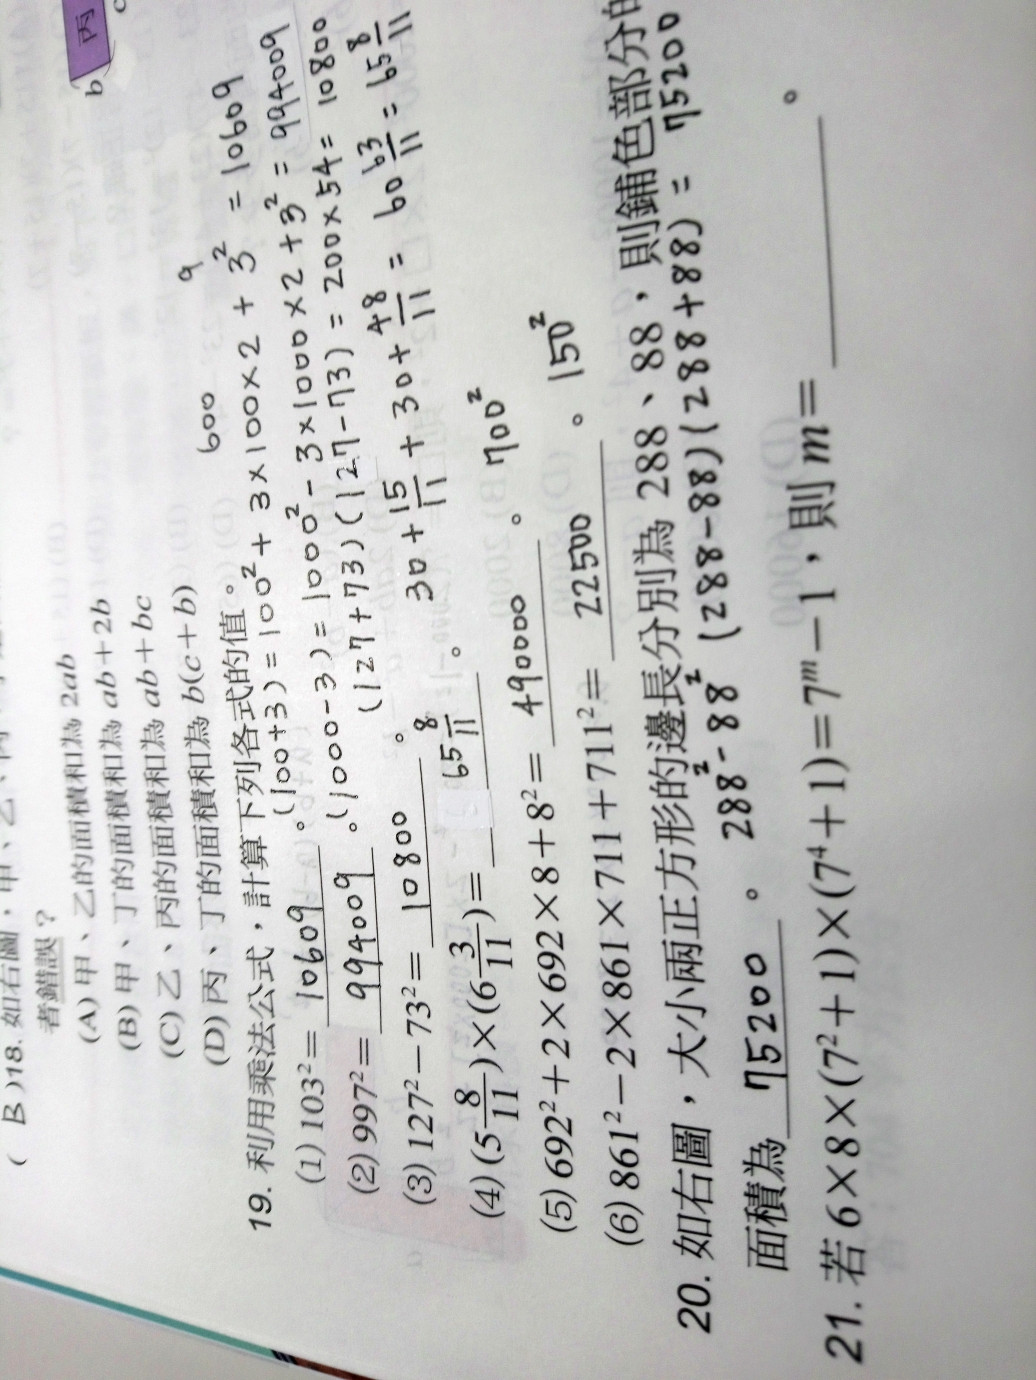 b 丙
( B )18. 如右圖，甲、乙、丙
者錯誤？
(A) 甲、乙的面積和為 2ab
(B) 甲、丁的面積和為 ab+2b
(C) 乙、丙的面積和為 ab+bc
(D) 丙、丁的面積和為 b(c+b)
600 9
19. 利用乘法公式，計算下列各式的值。
(1) 103²= 10609 。 (100+3)=100²+3×100×2+3²=10609
(2) 997²= 994009 。 (1000-3)=1000²-3×1000×2+3²=994009
(3) 127²-73²= 10800 。 (127+73)(127-73)=200×54=10800
(4) (5 8/11)×(6 3/11)= 65 8/11 。 30+15/11+30+48/11=60 63/11=65 8/11
(5) 692²+2×692×8+8²= 490000 。 700²
(6) 861²-2×861×711+711²= 22500 。 150²
20. 如右圖，大小兩正方形的邊長分別為 288、88，則鋪色部分的
面積為 75200 。 288²-88² (288-88)(288+88)=75200
21. 若 6×8×(7²+1)×(7⁴+1)=7ᵐ-1，則 m= 。